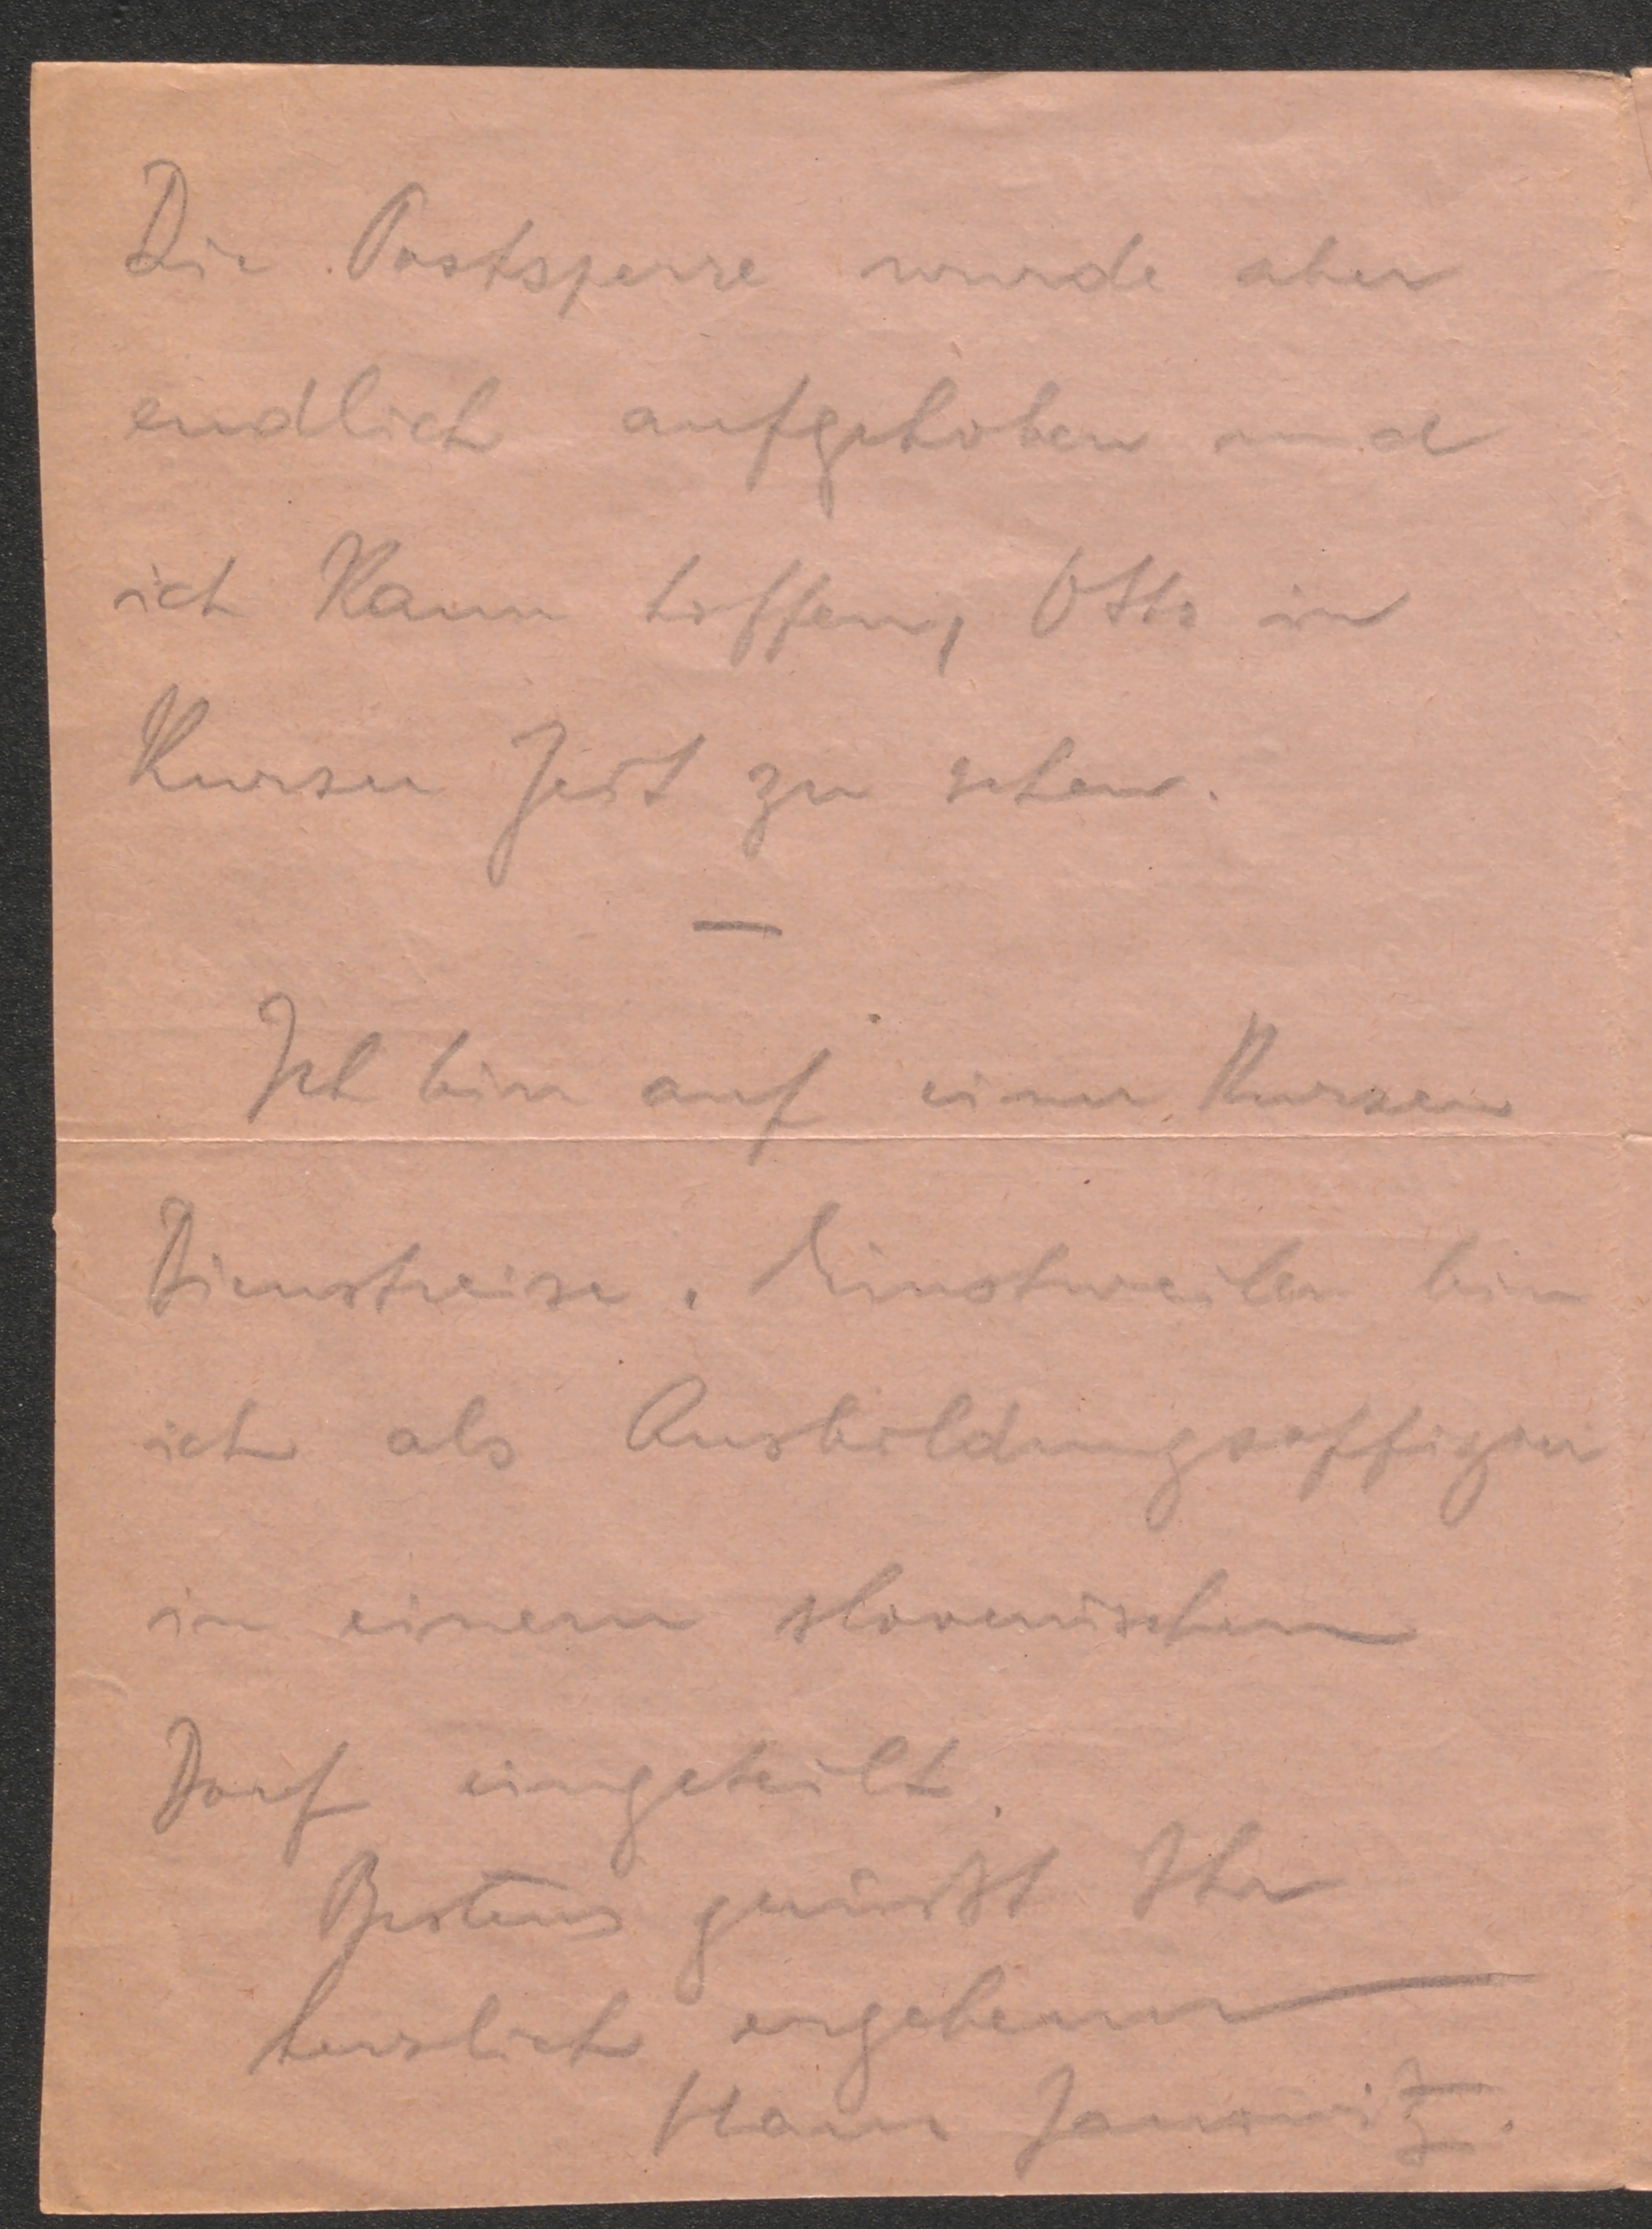 Die Postsperre wurde aber
endlich aufgehoben und
ich kann hoffen, Otto in
kurzer Zeit zu sehen.
—
Ich bin auf einer kurzen
Dienstreise. Einstweilen bin
ich als Ausbildungsoffizier
in einem slovenischen
Dorf eingeteilt.
Bestens grüsst Ihr
herzlich ergebener
Hans Janowitz.